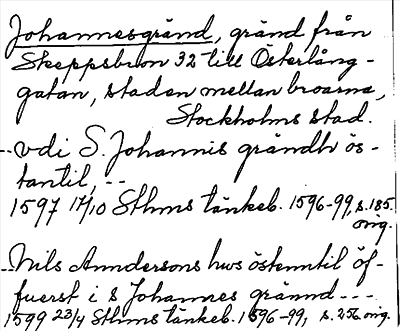 Johannesgränd, gränd från
Skeppsbron 32 till Österlång-
gatan, staden mellan broarna,
Stockholms stad.
--vdi S. Johannis grändh ös-
tantil, --
1597 17/10 Sthms tänkeb. 1596-99, s. 185.
orig.
--Nils Anndersons hws östenntil öf-
fuerst i S Johannes grännd ---
1599 23/4 Sthms tänkeb. 1596-99, s. 256 orig.